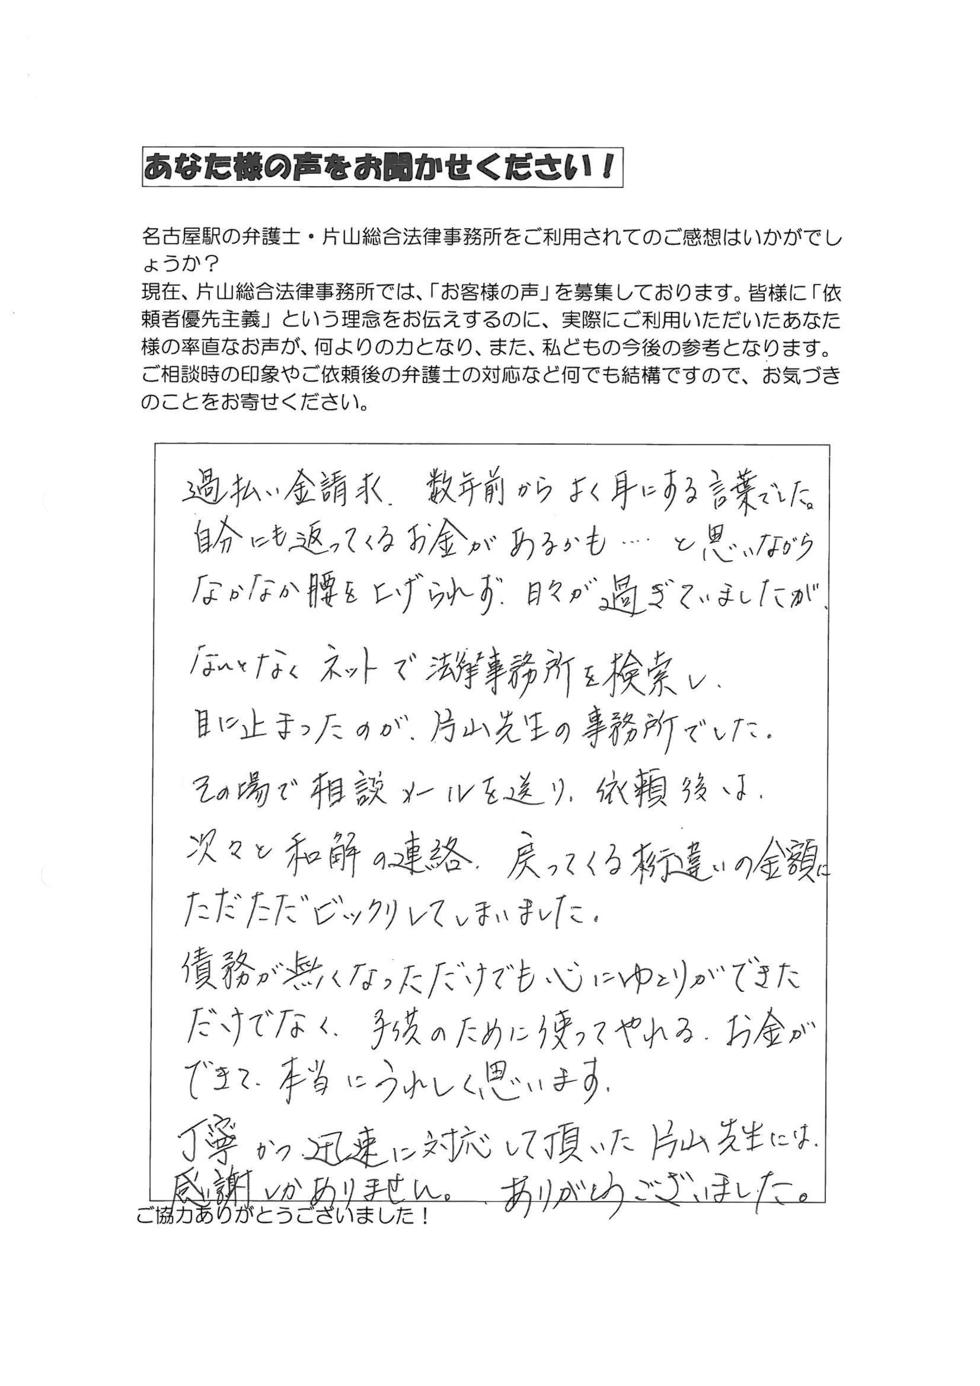 あなた様の声をお聞かせください！
名古屋駅の弁護士・片山総合法律事務所をご利用されてのご感想はいかがでし
ょうか？
現在、片山総合法律事務所では、「お客様の声」を募集しております。皆様に「依
頼者優先主義」という理念をお伝えするのに、実際にご利用いただいたあなた
様の率直なお声が、何よりの力となり、また、私どもの今後の参考となります。
ご相談時の印象やご依頼後の弁護士の対応など何でも結構ですので、お気づき
のことをお寄せください。
過払い金請求、数年前からよく耳にする言葉でした。
自分にも返ってくるお金があるかも…と思いながら
なかなか腰を上げられず、日々が過ぎていましたが、
なんとなくネットで法律事務所を検索し、
目に止まったのが、片山先生の事務所でした。
その場で相談メールを送り、依頼後は、
次々と和解の連絡、戻ってくる桁違いの金額に
ただただビックリしてしまいました。
債務が無くなっただけでも心にゆとりができた
だけでなく、子供のために使ってやれる、お金が
できて、本当にうれしく思います。
丁寧かつ迅速に対応して頂いた片山先生には、
感謝しかありません。ありがとうございました。
ご協力ありがとうございました！